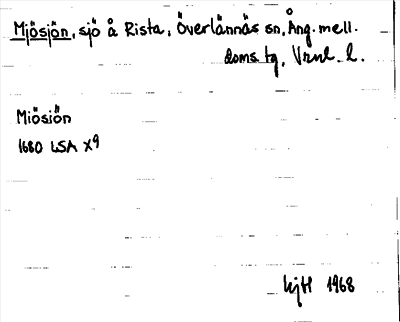 Mjösjön, sjö å Rista, Överlännäs sn, Ång. mell.
doms. tg, Vrnl. l.
Miösiön
1680 LSA X9
HjH 1968